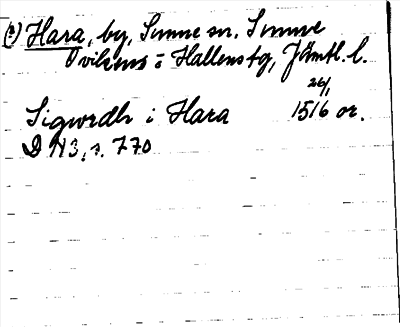 (?) Hara, by, Sunne sn, Sunne
Ovikens o Hallens tg, Jämtl. l.
26/1
Sigurdh i Hara 1516 or.
DN 3, s. 770